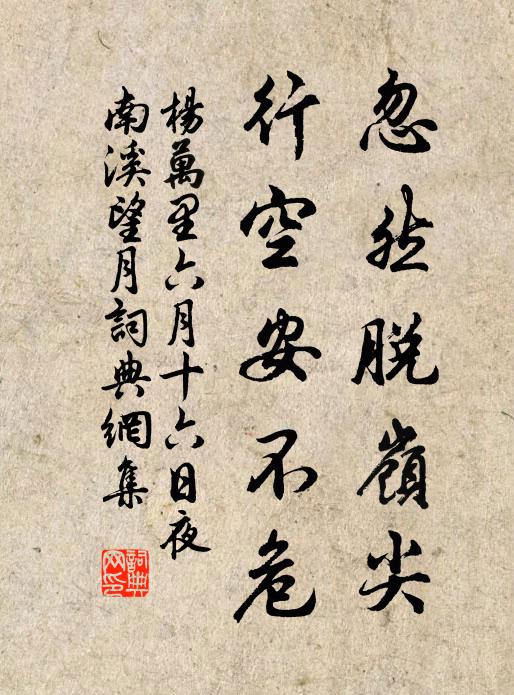 忽然脱嶺尖
行空安不危
楊萬里六月十六日夜
南溪望月詞典網集
詞典
网印